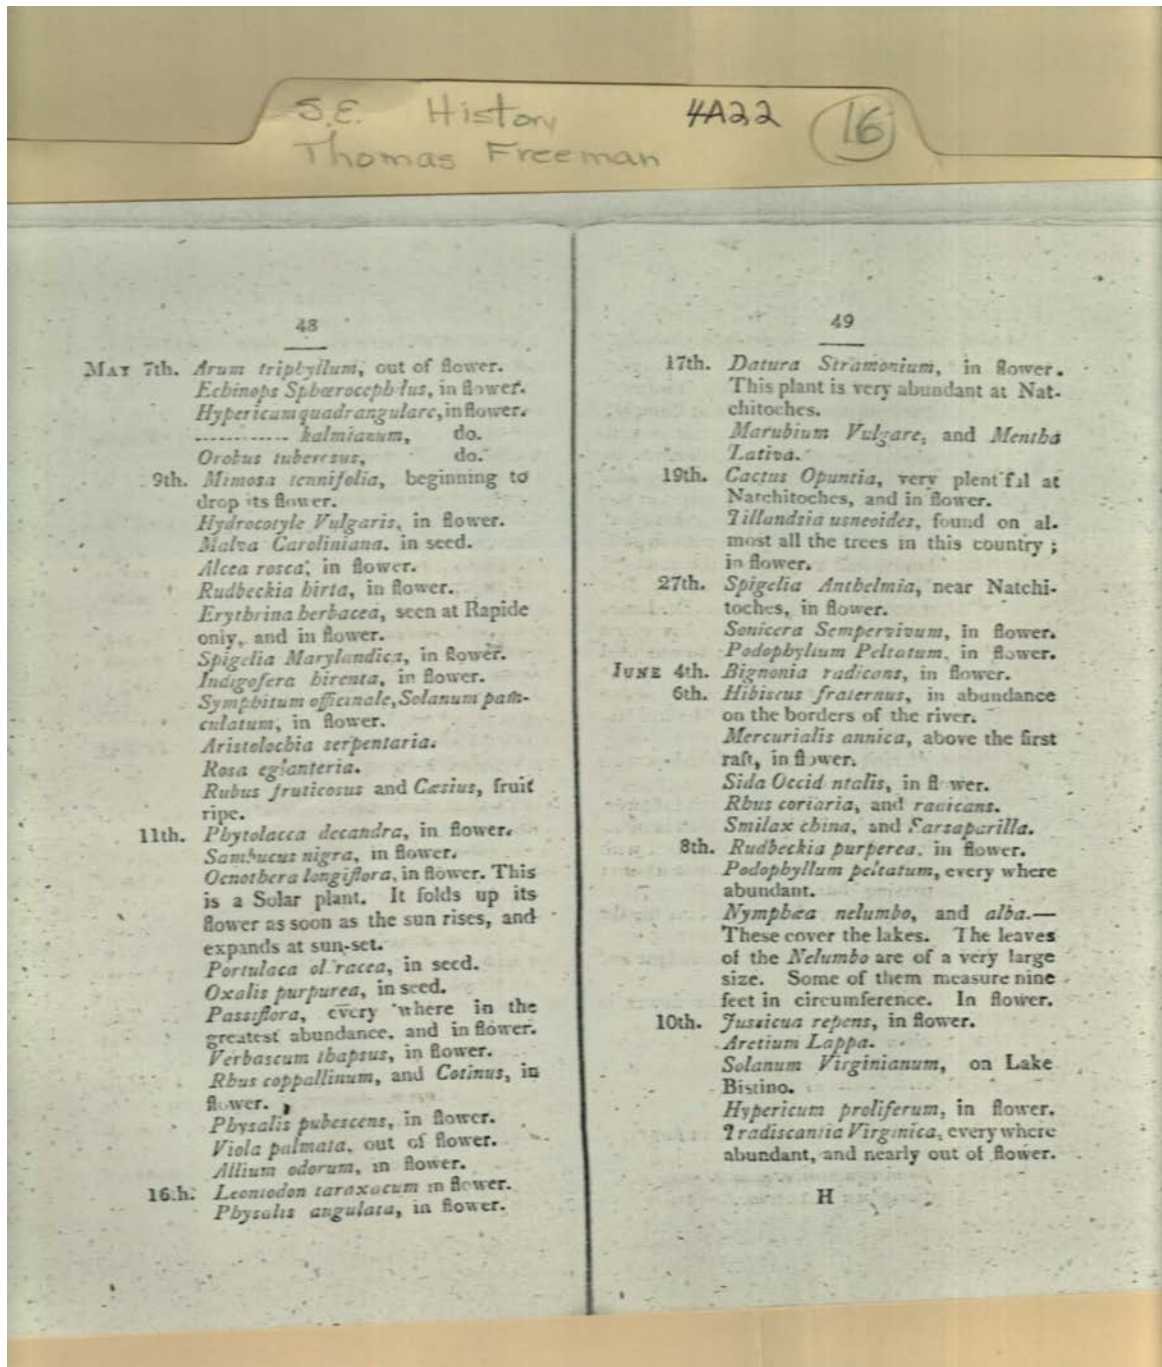 S.E. History 4A22 16
Thomas Freeman
48
MAY 7th. Arum triphyllum, out of flower.
Echinops Sphærocephlus, in flower.
Hypericum quadrangulare, in flower.
------------ kalmianum, do.
Orobus tuberesus, do.
9th. Mimosa tennifolia, beginning to
drop its flower.
Hydrocotyle Vulgaris, in flower.
Malva Caroliniana. in seed.
Alcea rosca, in flower.
Rudbeckia hirta, in flower.
Erythrina herbacea, seen at Rapide
only, and in flower.
Spigelia Marylandica, in flower.
Indigofera hirenta, in flower.
Symphitum officinale, Solanum pam-
culatum, in flower.
Aristolochia serpentaria.
Rosa eglanteria.
Rubus fruticosus and Cæsius, fruit
ripe.
11th. Phytolacca decandra, in flower.
Sambucus nigra, in flower.
Oenothera longiflora, in flower. This
is a Solar plant. It folds up its
flower as soon as the sun rises, and
expands at sun-set.
Portulaca ol racea, in seed.
Oxalis purpurea, in seed.
Passiflora, every where in the
greatest abundance, and in flower.
Verbascum thapsus, in flower.
Rhus coppallinum, and Cotinus, in
flower.
Physalis pubescens, in flower.
Viola palmata, out of flower.
Allium odorum, in flower.
16.h. Leontodon taraxacum in flower.
Physalis angulata, in flower.
49
17th. Datura Stramonium, in flower.
This plant is very abundant at Nat-
chitoches.
Marubium Vulgare, and Mentha
Lativa.
19th. Cactus Opuntia, very plent ful at
Natchitoches, and in flower.
Tillandsia usneoides, found on al-
most all the trees in this country ;
in flower.
27th. Spigelia Anthelmia, near Natchi-
toches, in flower.
Sonicera Sempervivum, in flower.
Podophylium Peltatum, in flower.
JUNE 4th. Bignonia radicans, in flower.
6th. Hibiscus fraternus, in abundance
on the borders of the river.
Mercurialis annica, above the first
raft, in flower.
Sida Occid ntalis, in fl wer.
Rhus coriaria, and radicans.
Smilax china, and Sarsaparilla.
8th. Rudbeckia purperea, in flower.
Podophyllum peltatum, every where
abundant.
Nymphæa nelumbo, and alba.—
These cover the lakes. The leaves
of the Nelumbo are of a very large
size. Some of them measure nine
feet in circumference. In flower.
10th. Jussicua repens, in flower.
Aretium Lappa.
Solanum Virginianum, on Lake
Bistino.
Hypericum proliferum, in flower.
Tradiscantia Virginica, every where
abundant, and nearly out of flower.
H